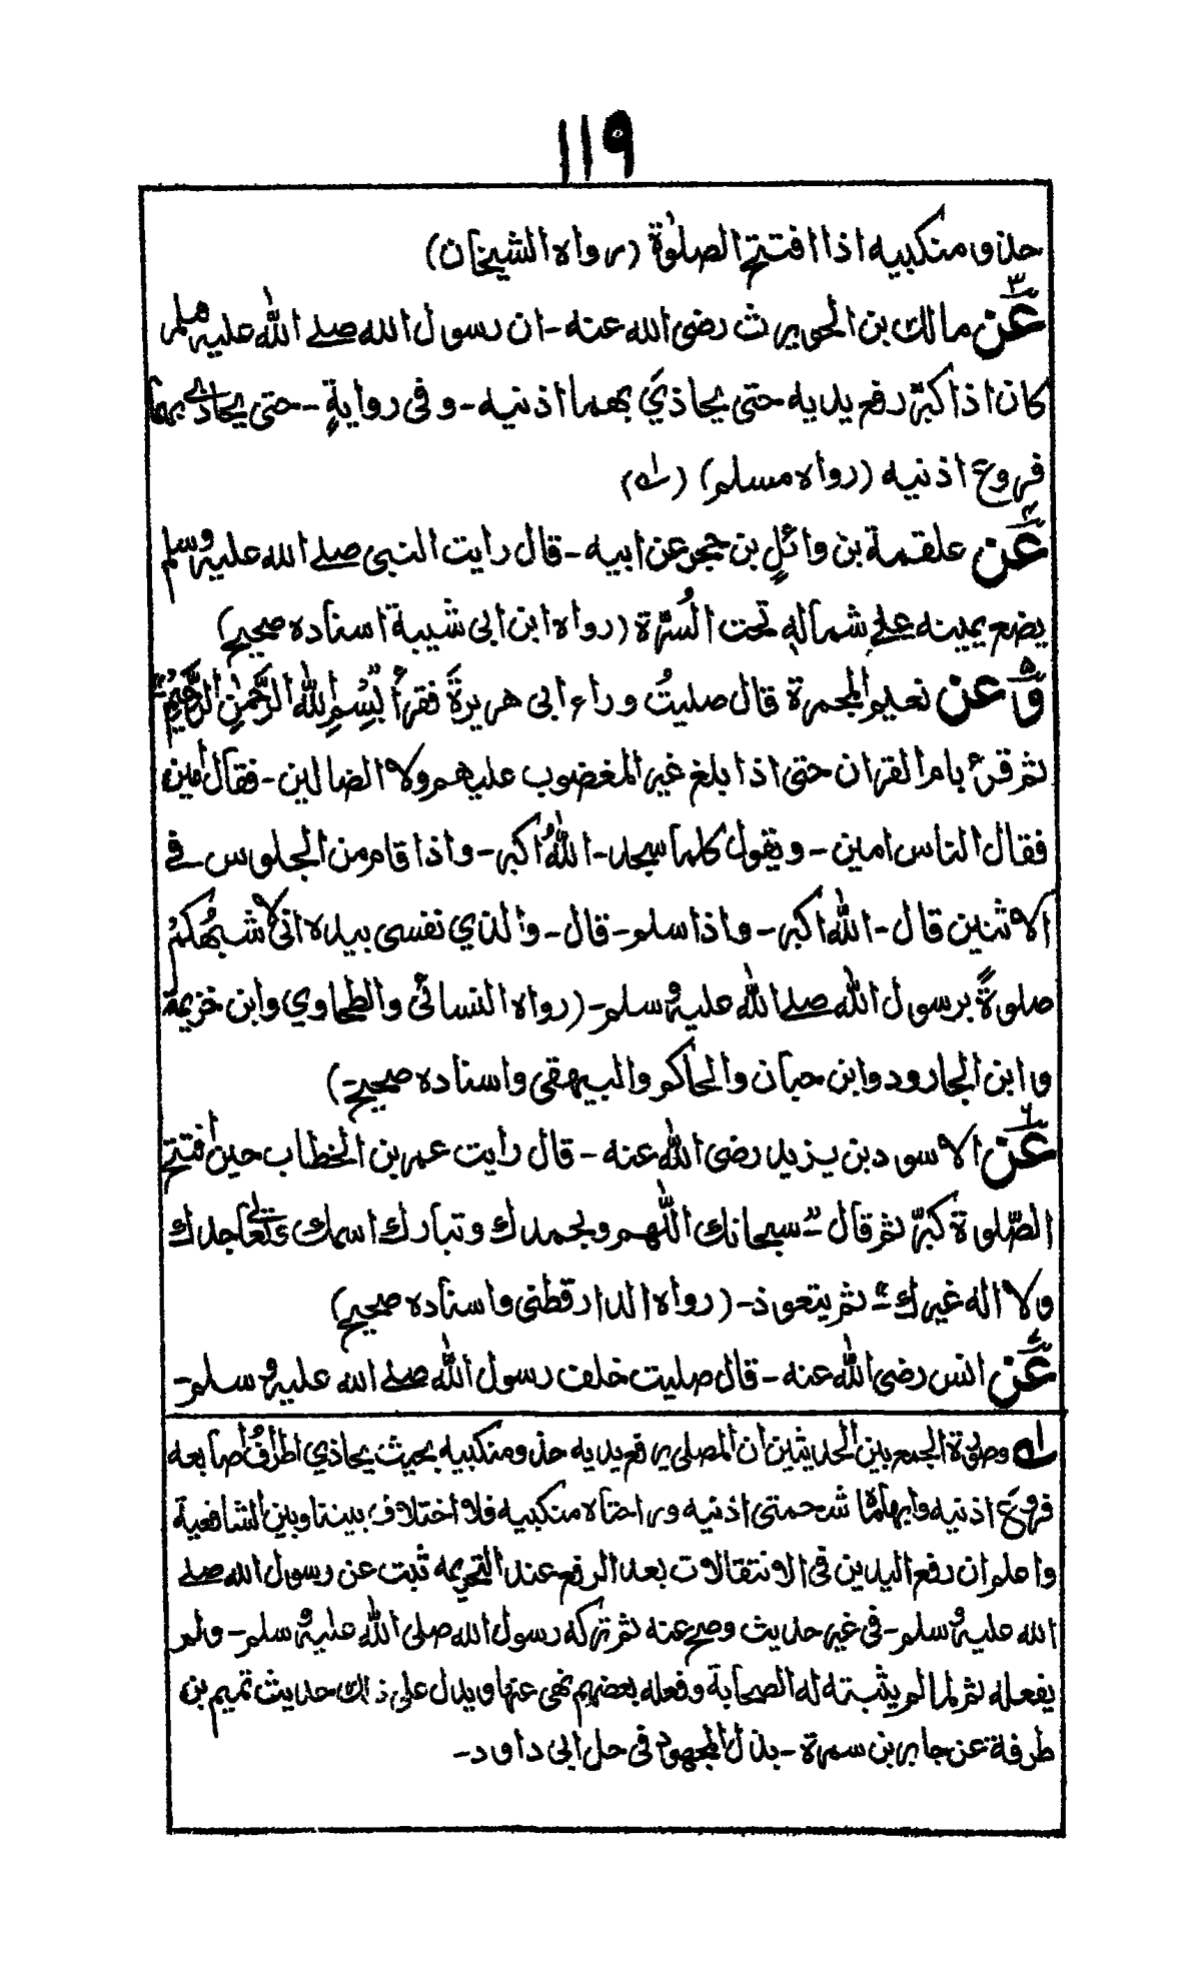 ١١٩
حذو منكبيه اذا افتتح الصلوٰة (رواه الشيخان)
٣ عَن مالك بن الحويرث رضى الله عنه - ان رسول الله صلے اللّٰه عليه وسلم
كان اذا كبّر رفع يديه حتى يحاذيَ بهما اذنيه - وفى روايةٍ - حتى يحاذے بهما
فروع اذنيه (رواه مسلم) (له)
٤ عَن علقمة بن وائلٍ بن حجر عن ابيه - قال رايت النبى صلے الله عليه وسلم
يضع يمينه علے شماله تحت السُرّة (رواه ابن ابى شيبة اسناده صحيح)
٥ وَعن نعيم المجمرة قال صليتُ وراء ابى هريرةَ فقرأ بِسْمِ اللّٰهِ الرَّحْمٰنِ الرَّحِيْمِ
ثم قرء بام القران حتى اذا بلغ غير المغضوب عليهم ولا الضالين - فقال اٰمين
فقال الناس امين - ويقول كلما سجد - اللّٰهُ اكبر - واذا قام من الجلوس فے
الاثنين قال - اللّٰه اكبر - واذا سلم - قال - والذي نفسى بيده انى لاشبهُكمُ
صلوةً برسول اللّٰه صلے اللّٰه عليه وسلم - (رواه النسائى والطحاوي وابن خزيمة
وابن الجارود وابن حبان والحاكم والبيهقى واسناده صحيح -)
٦ عَن الاسود بن يزيد رضى اللّٰه عنه - قال رايت عمر بن الخطاب حين افتتح
الصّلوة كبّر ثم قال "سبحانك اللّٰهم وبحمدك وتبارك اسمك وتعالے جدك
ولا اله غيرك" ثم يتعوذ - (رواه الدارقطنى واسناده صحيح)
٧ عَن انس رضى اللّٰه عنه - قال صليت خلف رسول اللّٰه صلے الله عليه وسلم -
له وصورة الجمع بين الحديثين ان المصلى يرفع يديه حذو منكبيه بحيث يحاذي اطرافُ اصابعه
فروعَ اذنيه وابهاماه شحمتى اذنيه وراحتاه منكبيه فلا اختلاف بيننا وبين الشافعية
واعلم ان رفع اليدين فى الانتقالات بعد الرفع عند التحريمه ثبت عن رسول الله صلے
الله عليه وسلم - فى غير حديث وصح عنه ثم تركه رسول الله صلى اللّٰه عليه وسلم - ولم
يفعله ثم لما لم يثبته له الصحابة وفعله بعضهم نهى عنها ويدل على ذالك حديث تميم بن
طرفة عن جابر بن سمرة - بذل المجهود فى حل ابى داود -